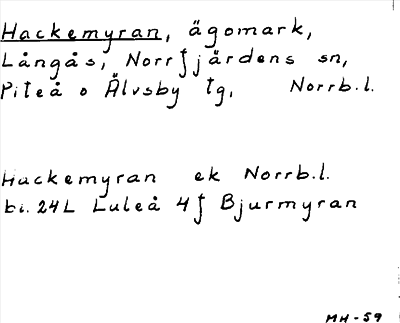 Hackemyran, ägomark,
Långås, Norrfjärdens sn,
Piteå o Älvsby tg, Norrb.l.
Hackemyran ek Norrb.l.
bi. 24L Luleå 4f Bjurmyran
MH-59